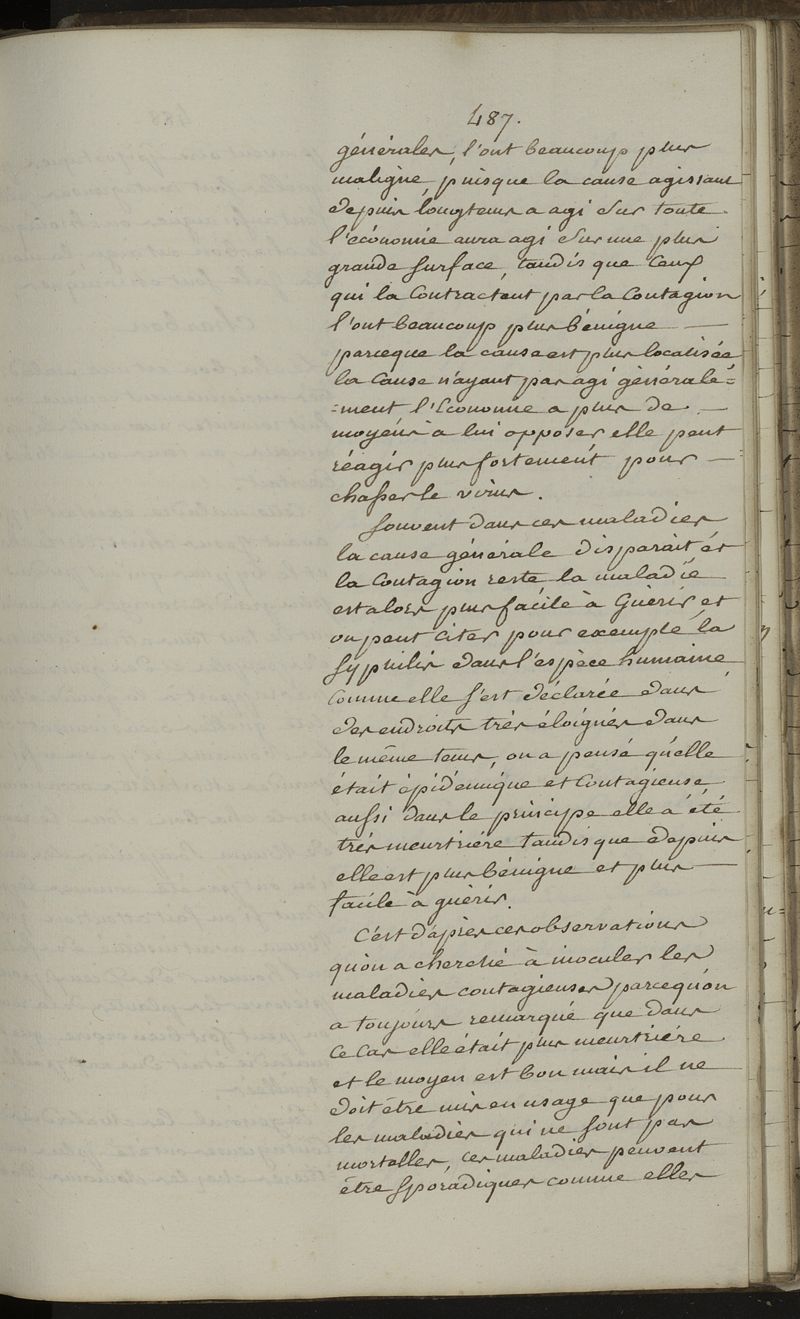 487.
générales, l'ont beaucoup plus
maligne, puisque la cause agissant
depuis longtems a agi sur toute
l'économie aura agi sur une plus
grande surface, tandis que ceux
qui la Contractent par la Contagion
l'ont beaucoup plus bénigne —
parceque la cause est plus localisée
la Cause n'ayant pas agi générale=
=ment l'Economie a plus de —
moyens à lui opposer elle peut
réagir plus fortement pour —
chasser le virus.
Souvent dans ces maladies
la cause générale disparait et
la Contagion reste la maladie
est alors plus facile à Guérir et
on peut citer pour exemple la
Syphilis dans l'espèce humaine
Comme elle s'est déclarée dans
des endroits très éloignés dans
le même tems, on a pensé qu'elle
était épidémique et Contagieuse
aussi dans le principe elle a été
très meurtrière tandis que depuis
elle est plus bénigne et plus —
facile à guérir.
C'est d'après ces observations
qu'on a cherché à inoculer les
maladies contagieuses parcequ'on
a toujours remarqué que dans
ce Cas elle était plus meurtrière
et le moyen est bon mais il ne
doit être mis en usage que pour
les maladies qui ne sont pas
mortelles, ces maladies peuvent
être Sporadiques comme elles